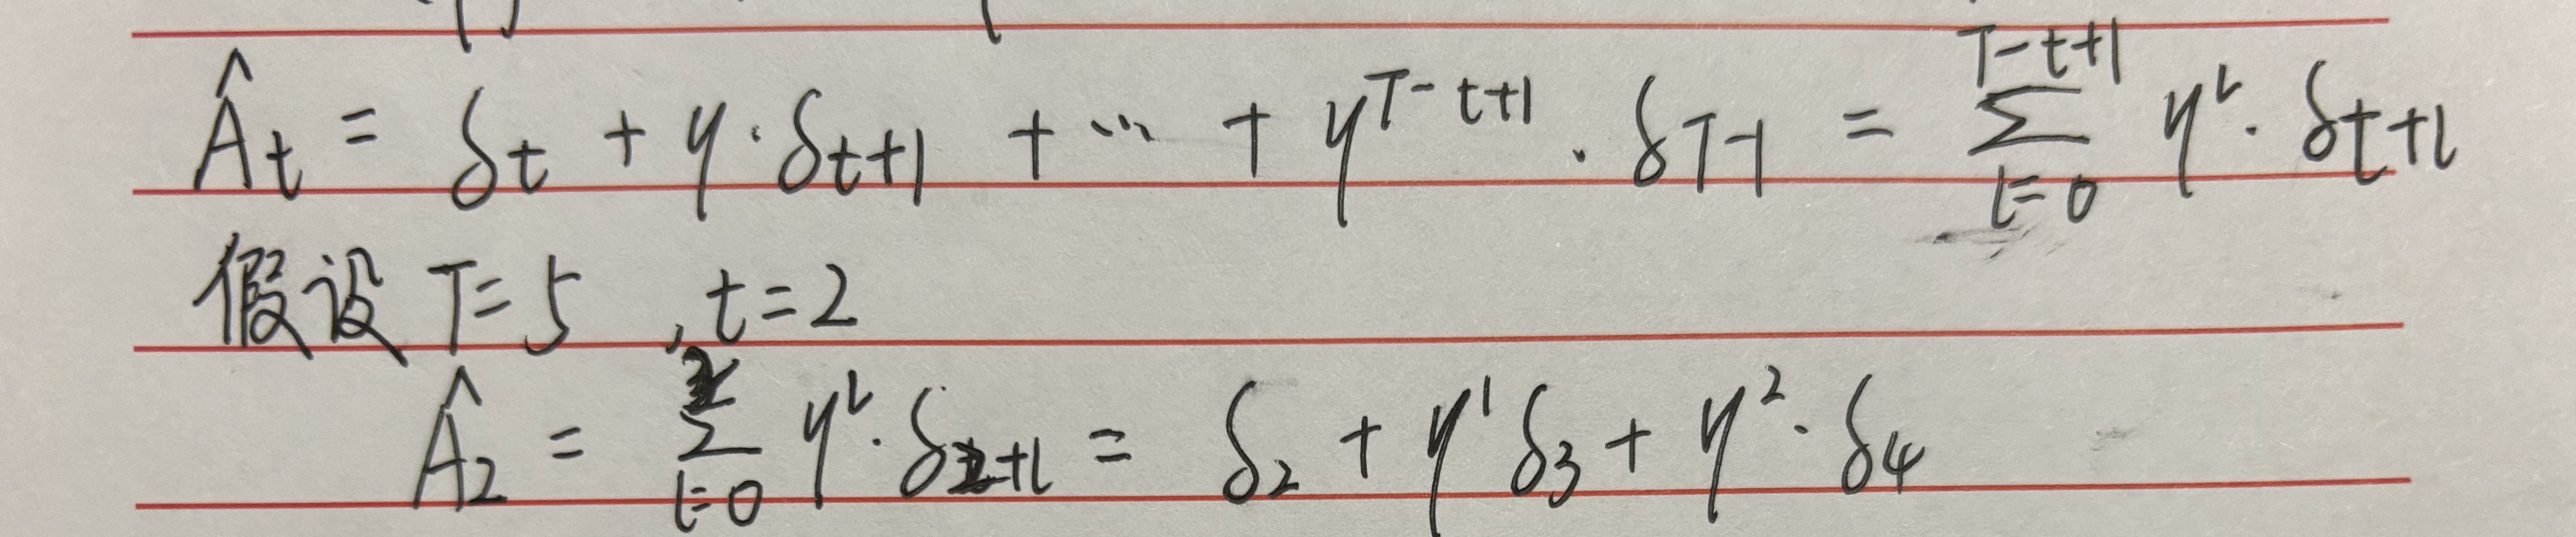 Â_t = δ_t + γ·δ_{t+1} + ... + γ^{T-t+1}·δ_{T-1} = Σ_{l=0}^{T-t+1} γ^l·δ_{t+l}
假设 T=5 , t=2
Â_2 = Σ_{l=0}^{2} γ^l·δ_{2+l} = δ_2 + γ^1 δ_3 + γ^2·δ_4